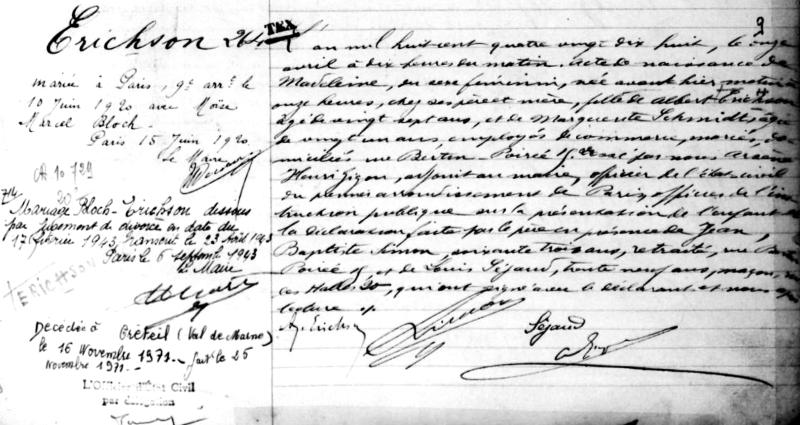 Erichson 264
mariée à Paris, 9e arrt le
10 Juin 1920 avec Moïse
Marcel Bloch.
Paris 15 Juin 1920
Le Maire
CA 10 729
714
20
Mariage Bloch-Erichson dissous
par jugement de divorce en date du
17 février 1943 transcrit le 23 Août 1943
Paris le 6 septembre 1943
Le Maire
ERICHSON
Décédée à Créteil (Val de Marne)
le 16 Novembre 1971.- fait le 25
Novembre 1971.-
L'Officier d'Etat Civil
par délégation
TEX
2
L'an mil huit cent quatre vingt dix huit, le onze
avril à dix heures du matin. Acte de naissance de
Madeleine, du sexe féminin, née avant hier matin à
onze heures, chez ses père et mère, fille de Albert Erichson
âgé de vingt sept ans, et de Marguerite Schmidt, âgée
de vingt un ans, employés de commerce, mariés, do-
miciliés rue Bertin-Poirée 15. Dressé par nous Arsène
Henri Gizon, adjoint au maire, officier de l'état civil
du premier arrondissement de Paris, officier de l'ins-
truction publique sur la présentation de l'enfant et
la déclaration faite par le père en présence de Jean
Baptiste Simon, soixante trois ans, retraité, rue Bertin
Poirée 15, et de Louis Séjaud, trente neuf ans, maçon, rue
des Halles 20, qui ont signé avec le déclarant et nous après
lecture
A. Erichson
Simon
Séjaud